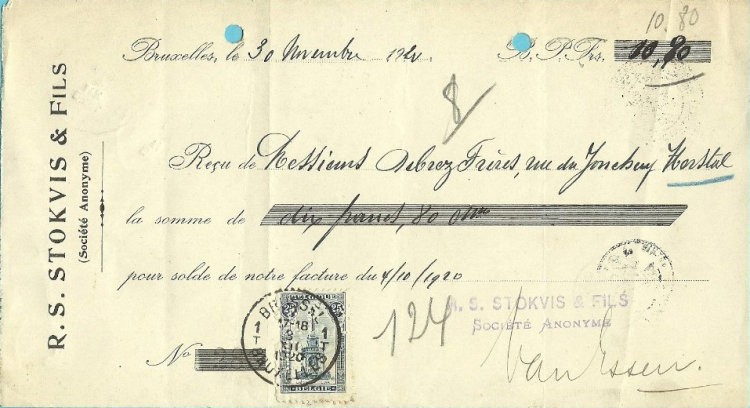 10.80
Bruxelles, le 30 Novembre 1920. B. P. Frs. 10,80
8
R. S. STOKVIS & FILS
(Société Anonyme)
Reçu de Messieurs Debroz Frères, rue du Jonckeu, Herstal
la somme de dix francs, 80 ctms
pour solde de notre facture du 4/10/1920
R. S. STOKVIS & FILS
SOCIÉTÉ ANONYME
124
No
17-18
XII
1920
1 T
1 T
BELGIË
Van Essen.